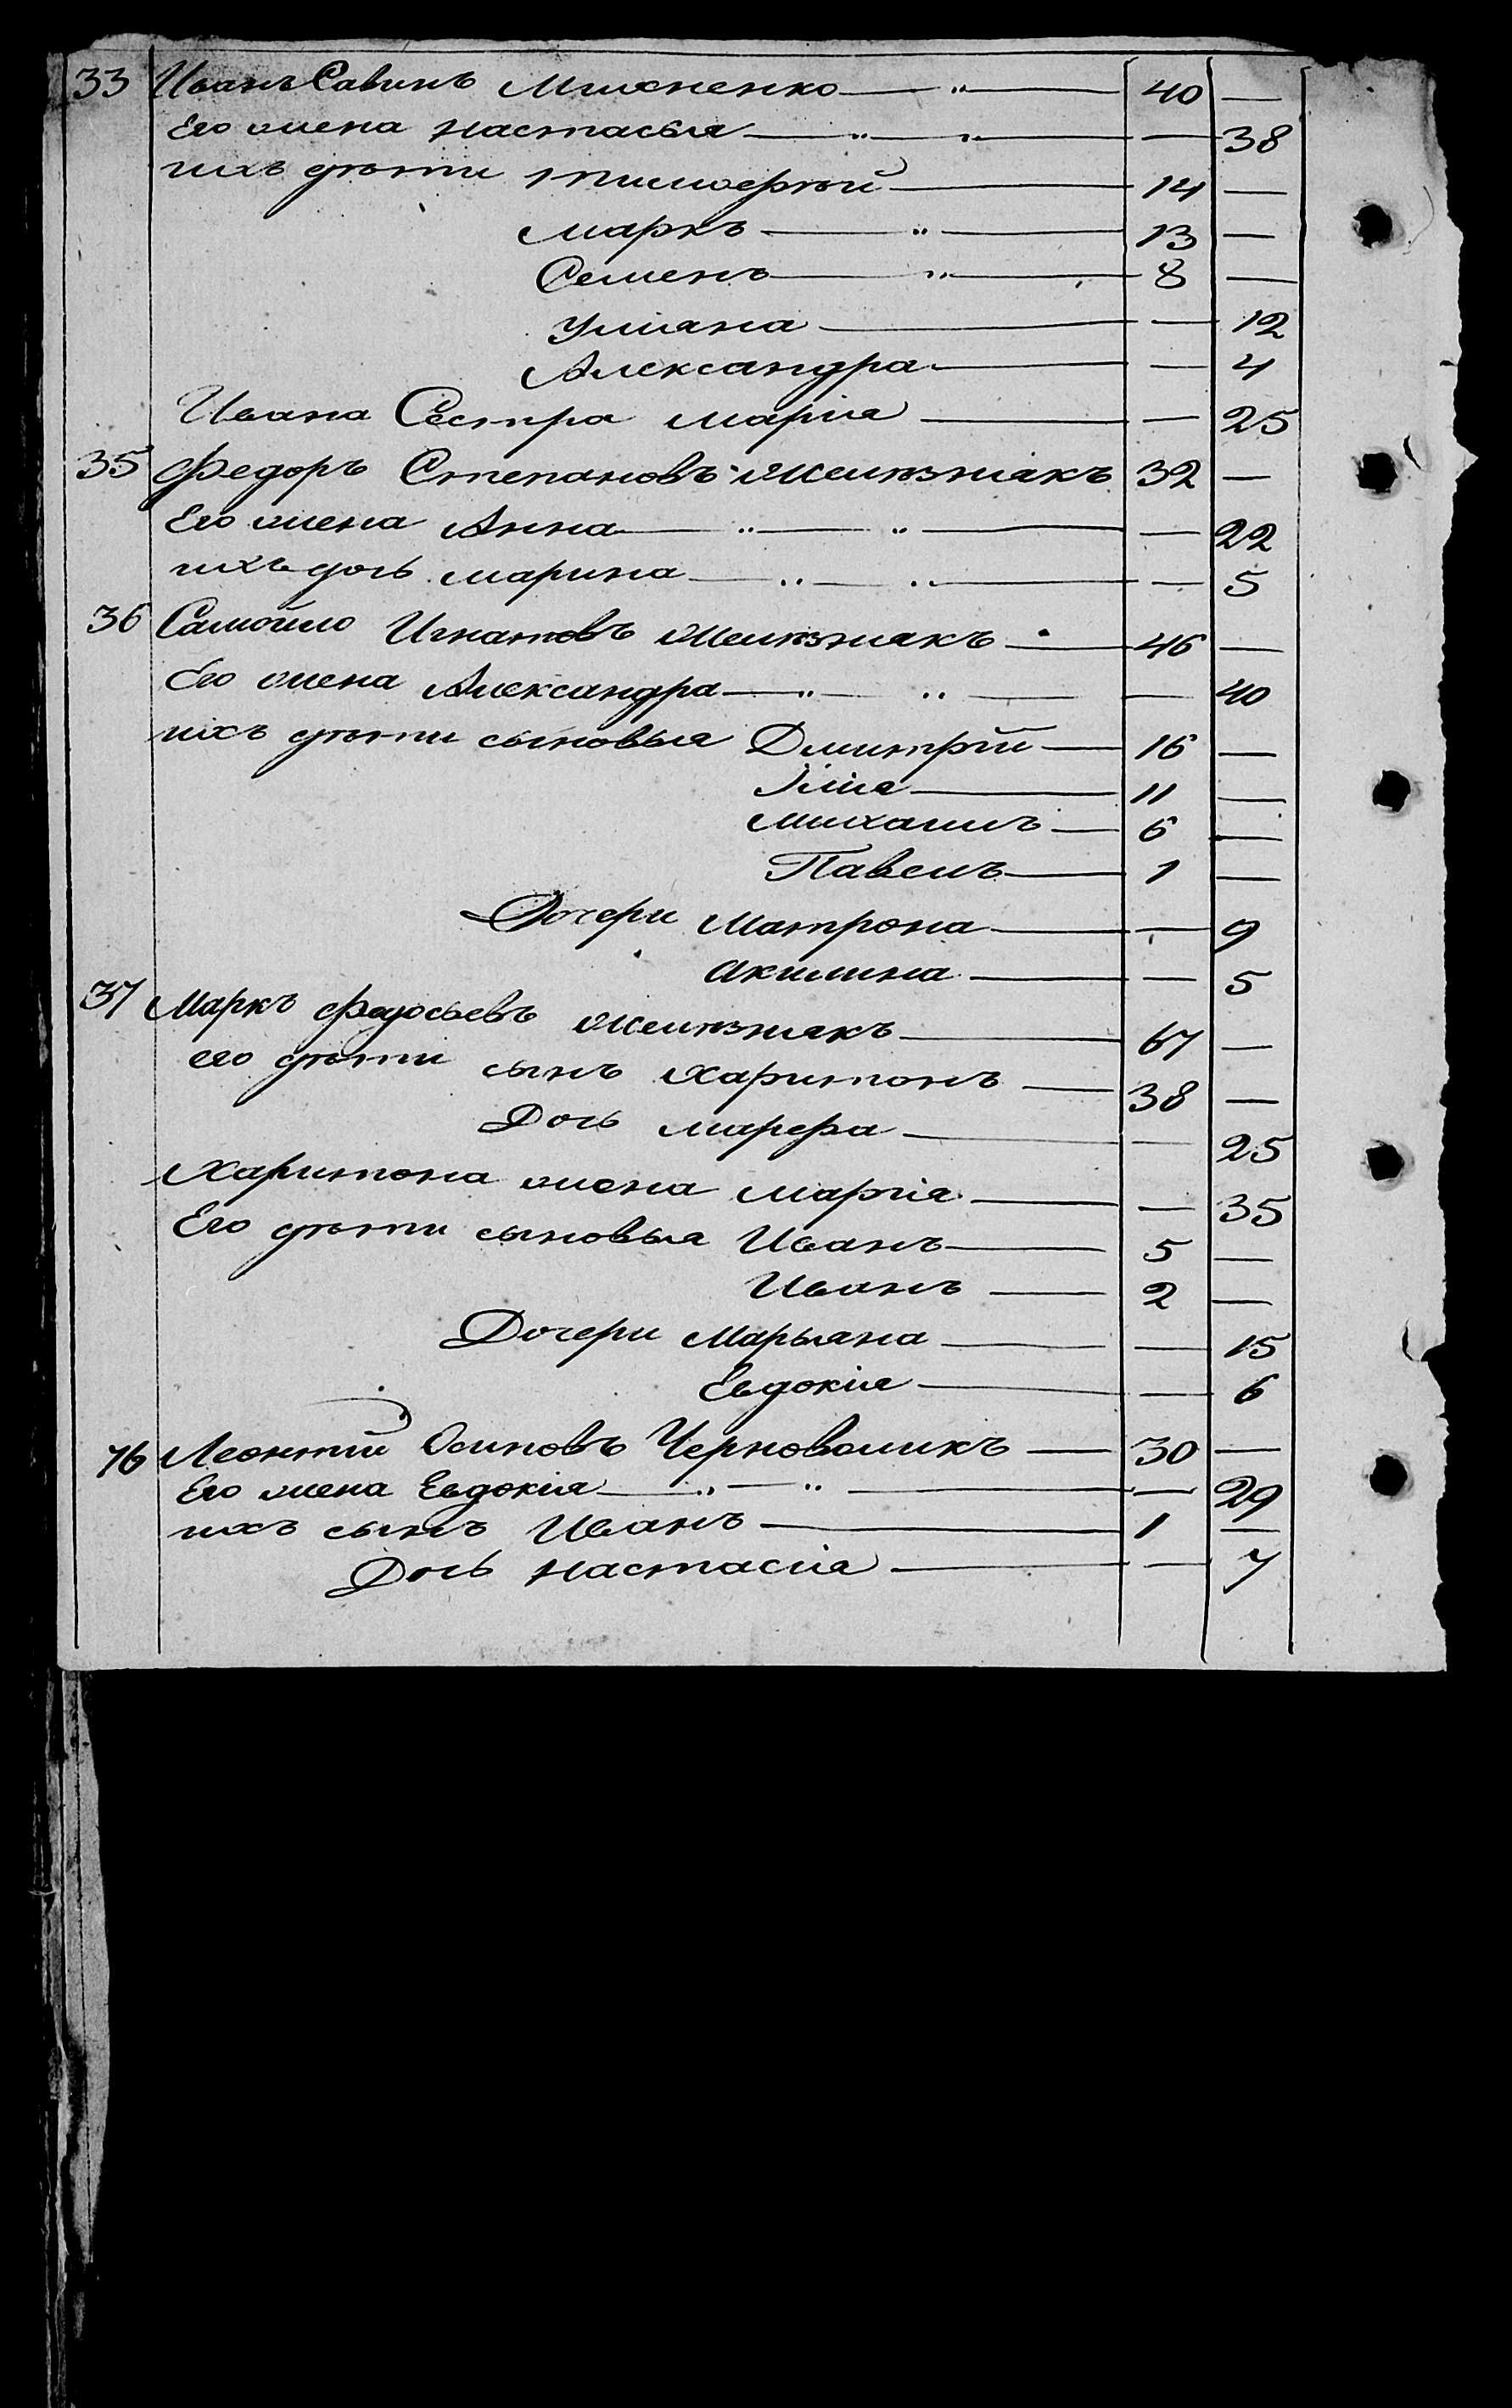 33 Иванъ Савинъ Михненко — „ — 40 —
Его жена Настасья — „ — „ — — 38
ихъ дѣти Тимофѣй — 14 —
Маркъ — „ — 13 —
Семенъ — „ — 8 —
Уліана — — 12
Александра — — 4
Ивана Сестра Марія — — 25
35 Федоръ Степановъ Желѣзнякъ 32 —
Его жена Анна — „ — „ — — 22
ихъ дочь Марина — „ — „ — — 5
36 Самойло Игнатовъ Желѣзнякъ — 46 —
Его жена Александра — „ — „ — — 40
ихъ дѣти сыновья Дмитрій — 16 —
Илія — 11 —
Михаилъ — 6 —
Павелъ — 1 —
Дочери Матрона — — 9
Акилина — — 5
37 Маркъ Федосьевъ Желѣзнякъ — 67 —
его дѣти сынъ Харитонъ — 38 —
Дочь Марфа — — 25
Харитона жена Марія — — 35
Его дѣти сыновья Иванъ — 5 —
Иванъ — 2 —
Дочери Марьяна — — 15
Евдокія — — 6
76 Леонтій Осиповъ Черноволикъ — 30 —
Его жена Евдокія — „ — „ — — 29
ихъ сынъ Иванъ — 1 —
Дочь Настасія — — 7